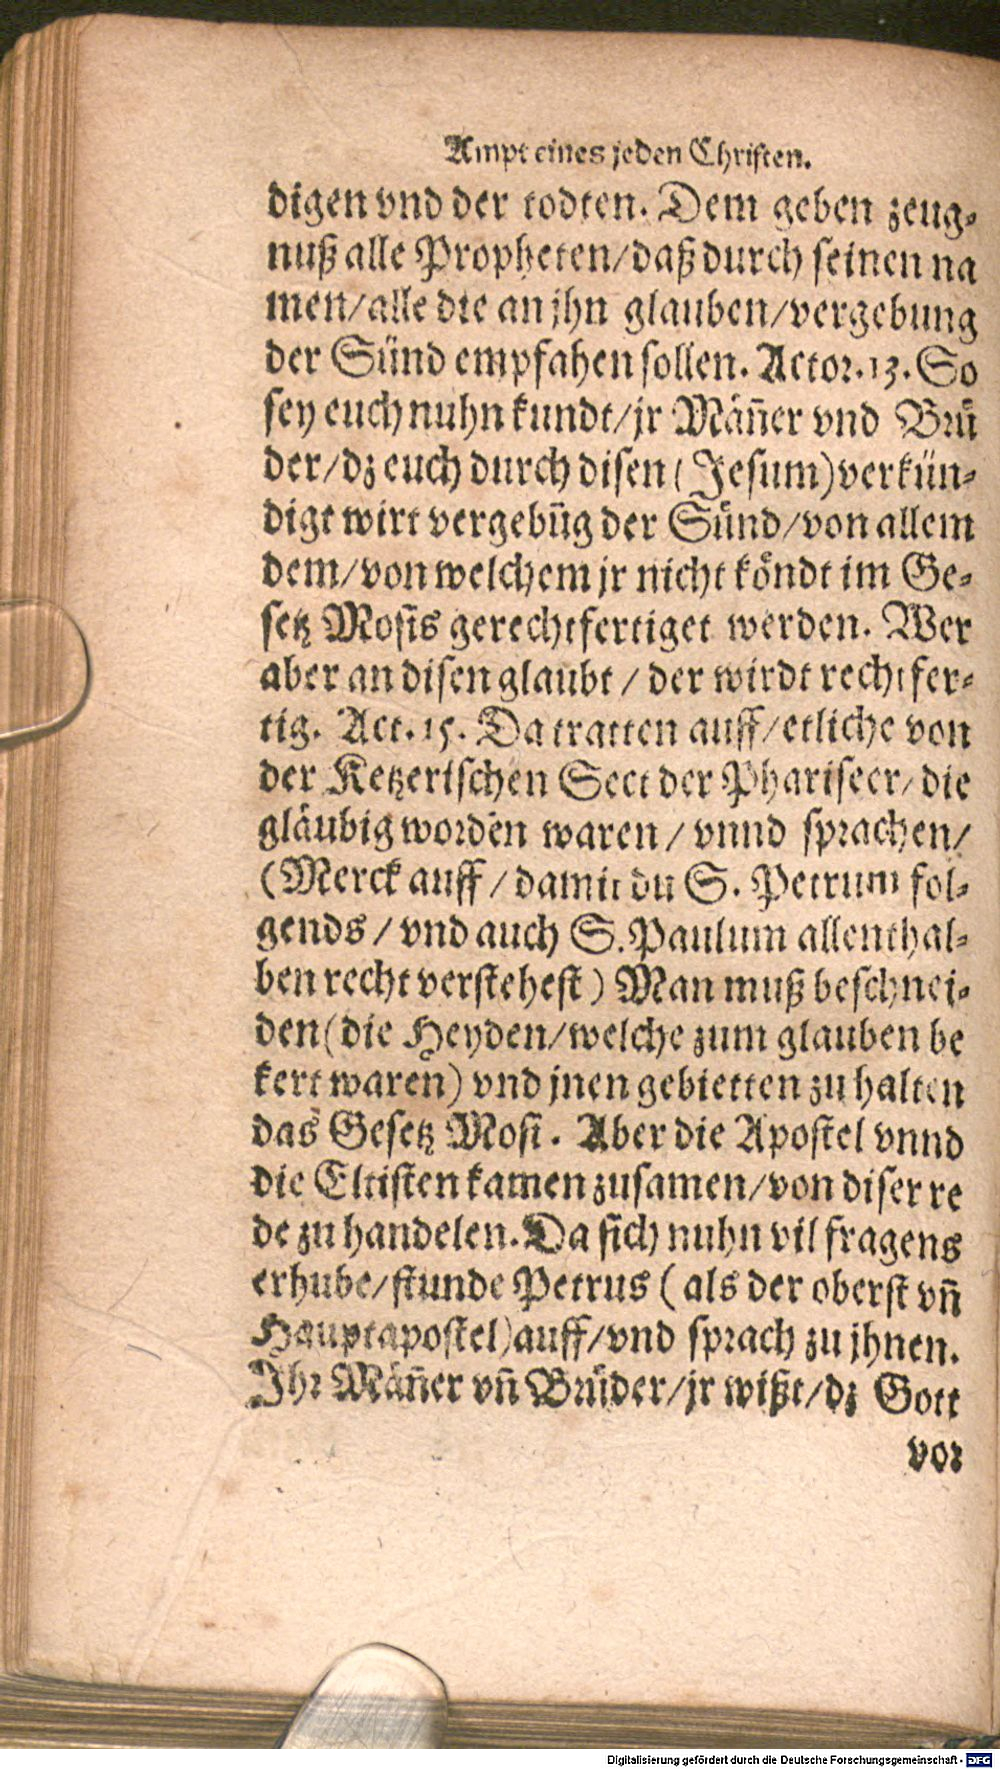 Ampt eines jeden Christen.
digen vnd der todten. Dem geben zeug-
nuß alle Propheten/daß durch seinen na
men/alle die an jhn glauben/vergebung
der Sünd empfahen sollen. Actor. 13. So
sey euch nuhn kundt/jr Mäñer vnd Brü
der/dz euch durch disen (Jesum) verkün-
digt wirt vergebũg der Sünd/von allem
dem/von welchem jr nicht köndt im Ge-
setz Mosis gerechtfertiget werden. Wer
aber an disen glaubt / der wirdt rechtfer-
tig. Act. 15. Da tratten auff/etliche von
der Ketzerischen Sect der Phariseer/die
gläubig worden waren / vnnd sprachen/
(Merck auff / damit du S. Petrum fol-
gends / vnd auch S. Paulum allenthal-
ben recht verstehest) Man muß beschnei-
den(die Heyden/welche zum glauben be
kert waren) vnd jnen gebietten zu halten
das Gesetz Mosi. Aber die Apostel vnnd
die Eltisten kamen zusamen/von diser re
de zu handelen. Da sich nuhn vil fragens
erhube/stunde Petrus ( als der oberst vñ
Hauptapostel)auff/vnd sprach zu jhnen.
Ihr Mäñer vñ Brüder/jr wißt/dz Gott
vor
Digitalisierung gefördert durch die Deutsche Forschungsgemeinschaft - DFG